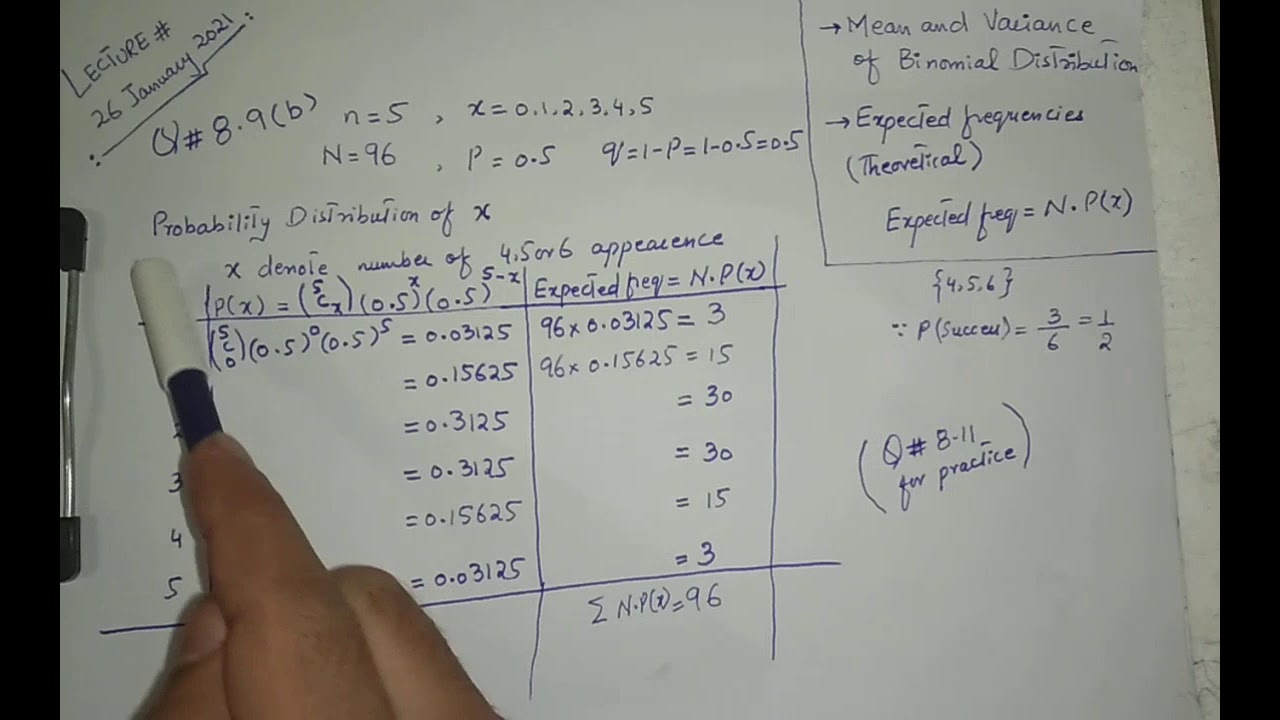 LECTURE #
26 January 2021
Q # 8.9(b) n=5 , x=0,1,2,3,4,5
N=96 , P=0.5 q=1-P=1-0.5=0.5
Probability Distribution of x
x denote number of 4,5 or 6 appearence
P(x) = (⁵Cₓ)(0.5)ˣ(0.5)⁵⁻ˣ Expected freq = N.P(x)
(⁵C₀)(0.5)⁰(0.5)⁵ = 0.03125 96×0.03125 = 3
= 0.15625 96×0.15625 = 15
= 0.3125 = 30
3 = 0.3125 = 30
4 = 0.15625 = 15
5 = 0.03125 = 3
Σ N.P(x)=96
→ Mean and Variance
of Binomial Distribution
→ Expected frequencies
(Theoretical)
Expected freq = N.P(x)
{4,5,6}
∵ P(Succes) = 3/6 = 1/2
(Q # 8-11
for practice)